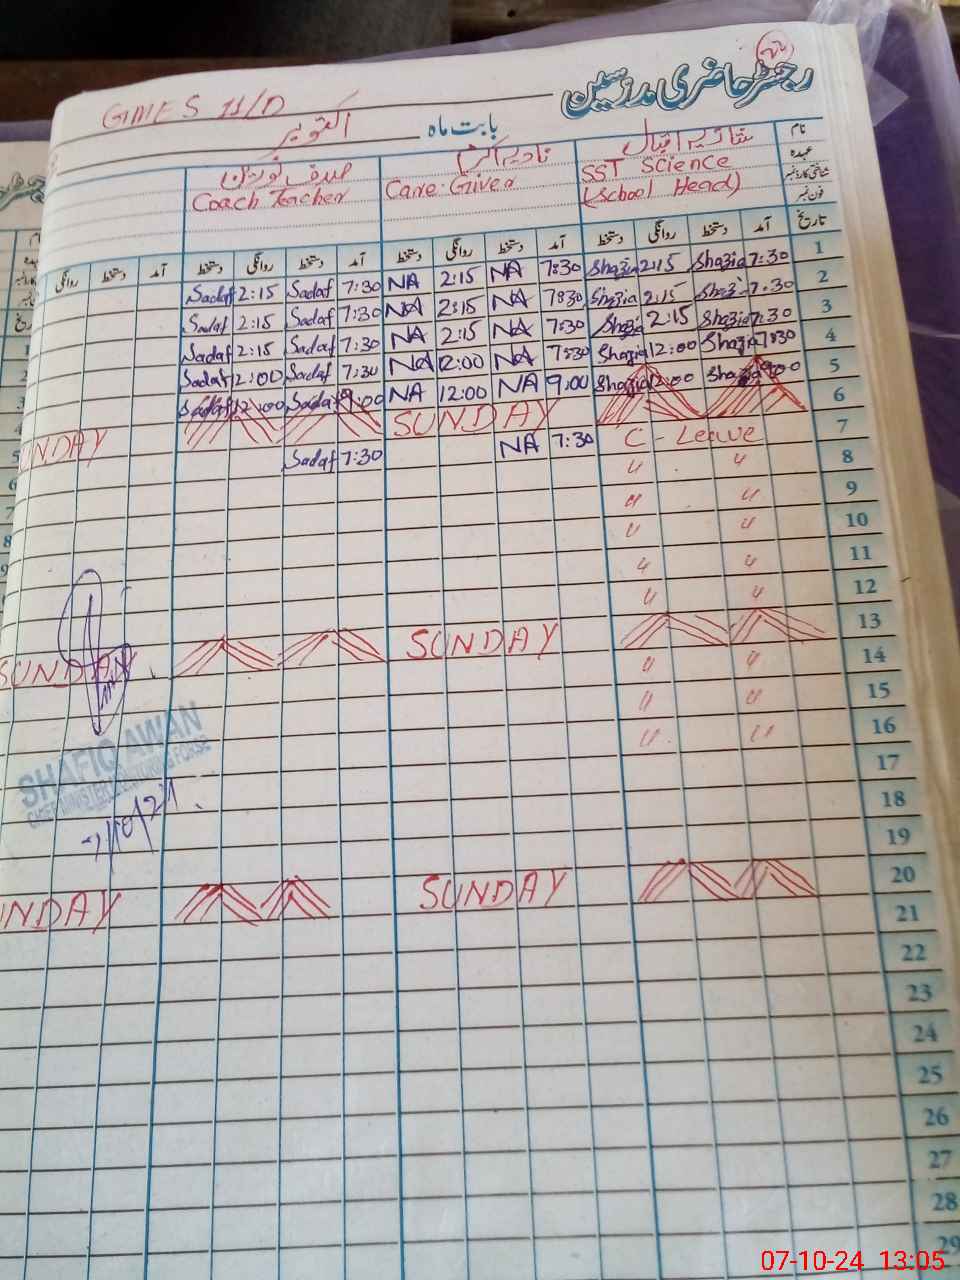 رجسٹر حاضری مدرسین
GMES 11/D
بابت ماہ اکتوبر
نام
عہدہ
شناختی کارڈ نمبر
فون نمبر
شازیہ اقبال
SST Science
(School Head)
نادیہ اکرم
Care Giver
صدف نورین
Coach Teacher
تاریخ آمد دستخط روانگی دستخط آمد دستخط روانگی دستخط آمد دستخط روانگی دستخط آمد دستخط روانگی
1 7:30 Shazia 2:15 Shazia 7:30 NA 2:15 NA 7:30 Sadaf 2:15 Sadaf
2 7:30 Shazia 2:15 Shazia 7:30 NA 2:15 NA 7:30 Sadaf 2:15 Sadaf
3 7:30 Shazia 2:15 Shazia 7:30 NA 2:15 NA 7:30 Sadaf 2:15 Sadaf
4 7:30 Shazia 12:00 Shazia 7:30 NA 12:00 NA 7:30 Sadaf 12:00 Sadaf
5 9:00 Shazia 12:00 Shazia 9:00 NA 12:00 NA 9:00 Sadaf 12:00 Sadaf
6 SUNDAY SUNDAY
7 C-Leave 7:30 NA 7:30 Sadaf
8 〃 〃
9 〃 〃
10 〃 〃
11 〃 〃
12 〃 〃
13 SUNDAY SUNDAY
14 〃 〃
15 〃 〃
16 〃 〃
SHAFIQ AWAN
CHIEF MINISTER MONITORING FORCE
17
18
19
20 SUNDAY UNDAY
21
22
23
24
25
26
27
28
29
07-10-24 13:05